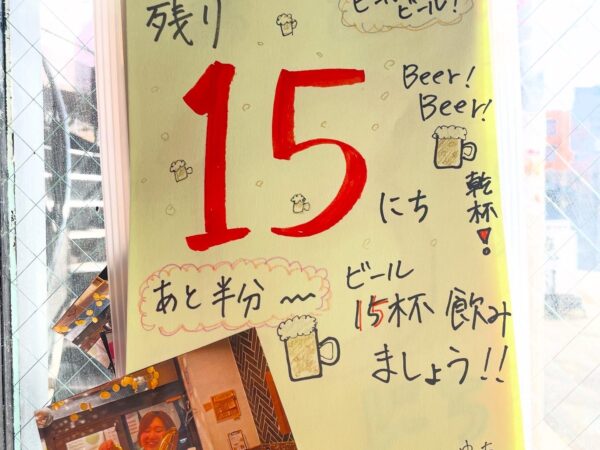 ビール!
残り
15
にち
Beer!
Beer!
乾杯!
あと半分〜
ビール
15杯 飲み
ましょう!!